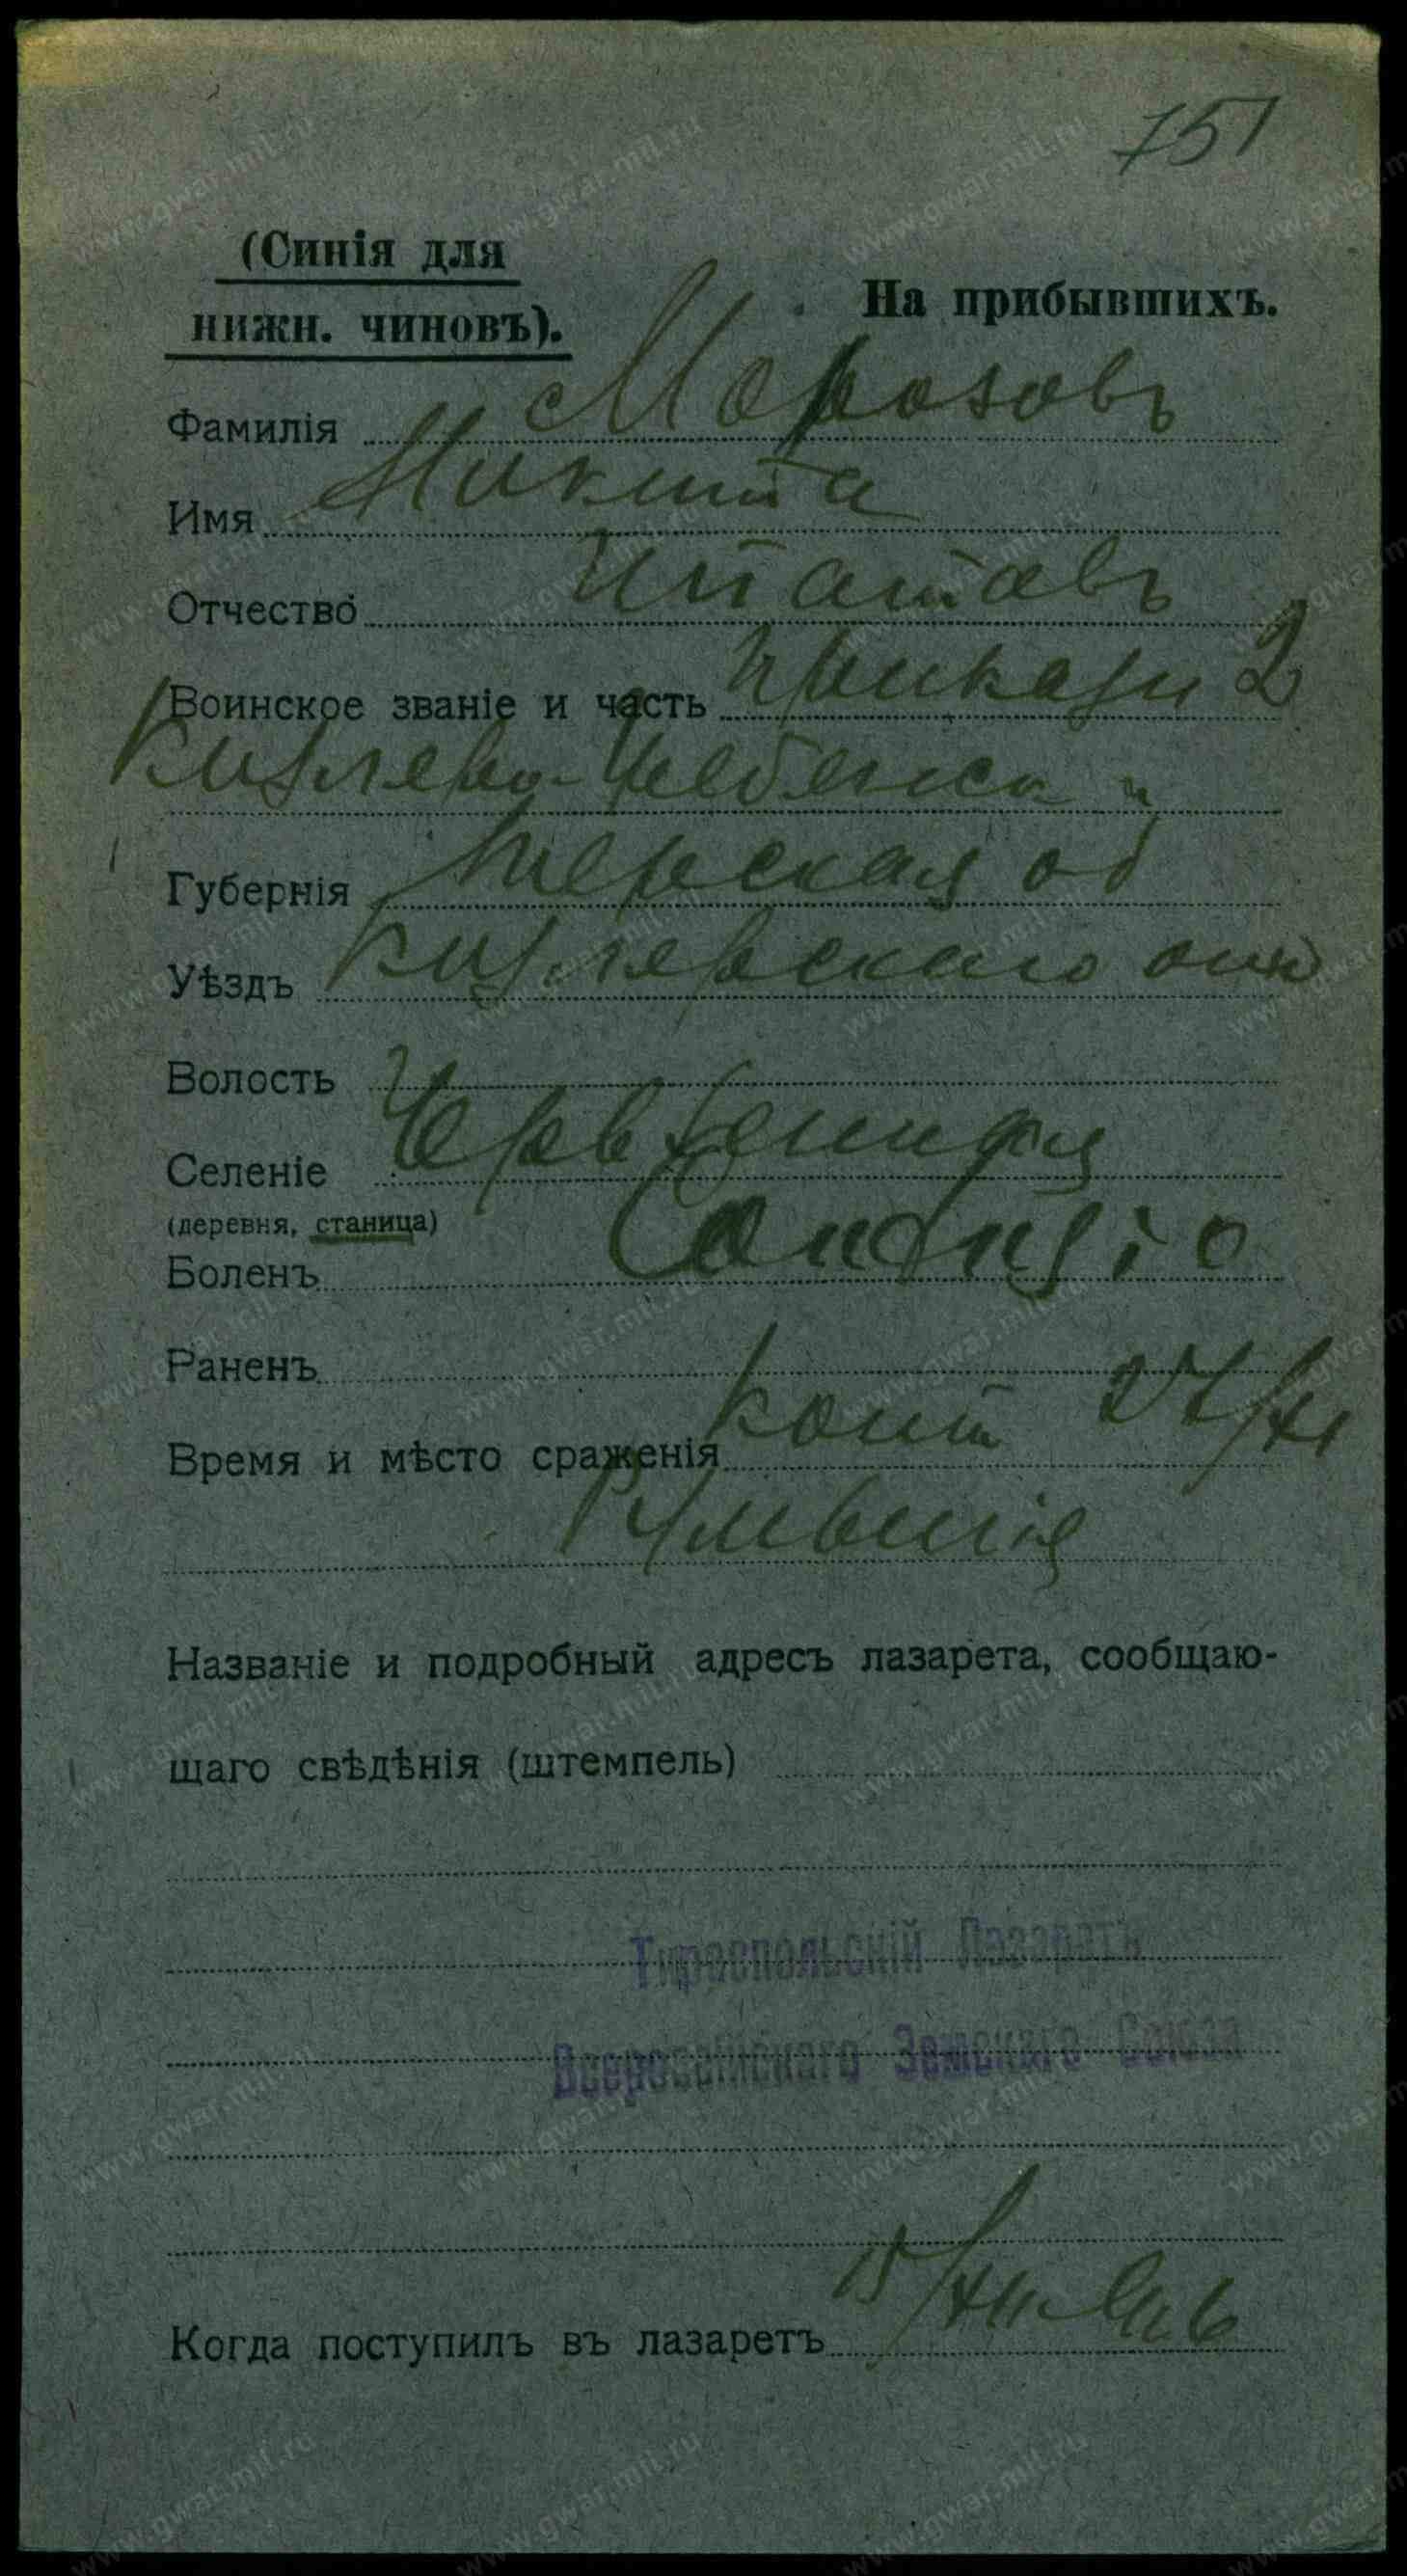 751
(Синія для
нижн. чиновъ).
На прибывшихъ.
Фамилія Морозовъ
Имя Никита
Отчество Ипатовъ
Воинское званіе и часть Приказн 2
Кизляро-Гребенск п
Губернія Терская об
Уѣздъ Кизлярскаго
Волость
Селеніе Червленная
(деревня, станица)
Боленъ Contuzio
Раненъ
Время и мѣсто сраженія Конт 27/XI
Румынія
Названіе и подробный адресъ лазарета, сообщаю-
щаго свѣдѣнія (штемпель)
Тираспольскій Лазаретъ
Всероссійскаго Земскаго Союза
Когда поступилъ въ лазаретъ 15/XII
www.gwar.mil.ru